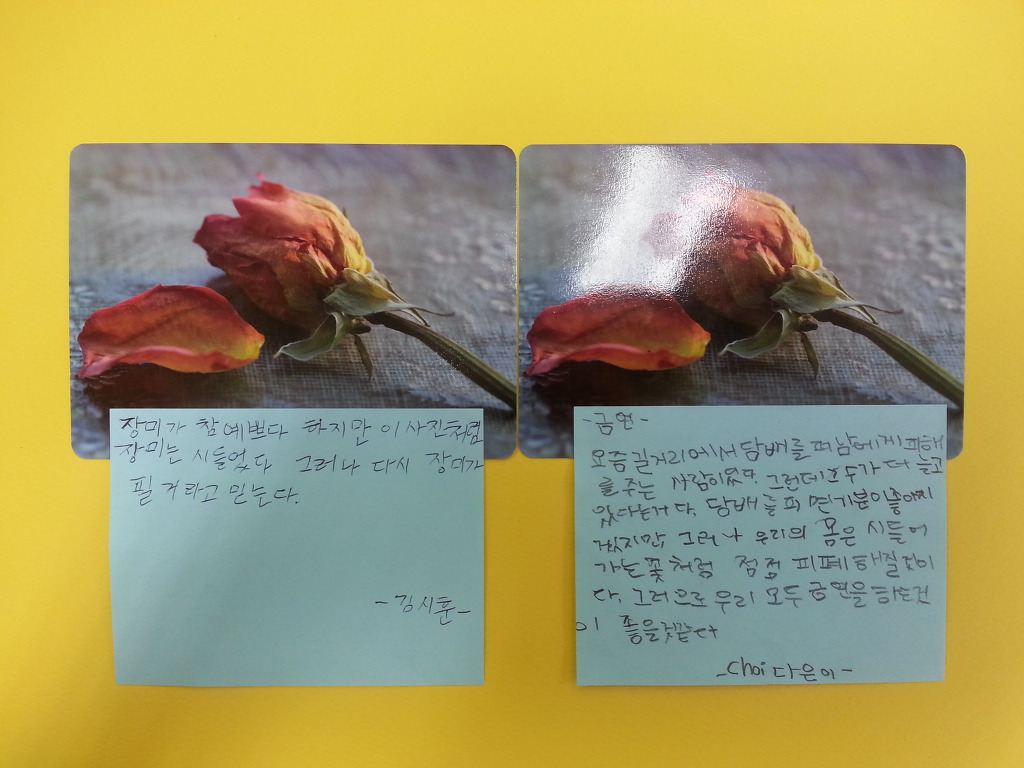 장미가 참 예쁘다 하지만 이 사진처럼
장미는 시들었다 그러나 다시 장미가
필 거라고 믿는다.
-김시훈-
-금연-
요즘 길거리에서 담배를 펴 남에게 피해
를 주는 사람이있다. 그런데 그 수가 더 늘고
있다는거다. 담배를 피면 기분이 좋아지
겠지만, 그러나 우리의 몸은 시들어
가는 꽃처럼 점점 피폐해질것이
다. 그러므로 우리 모두 금연을 하는것
이 좋을것같다
-choi 다은이-